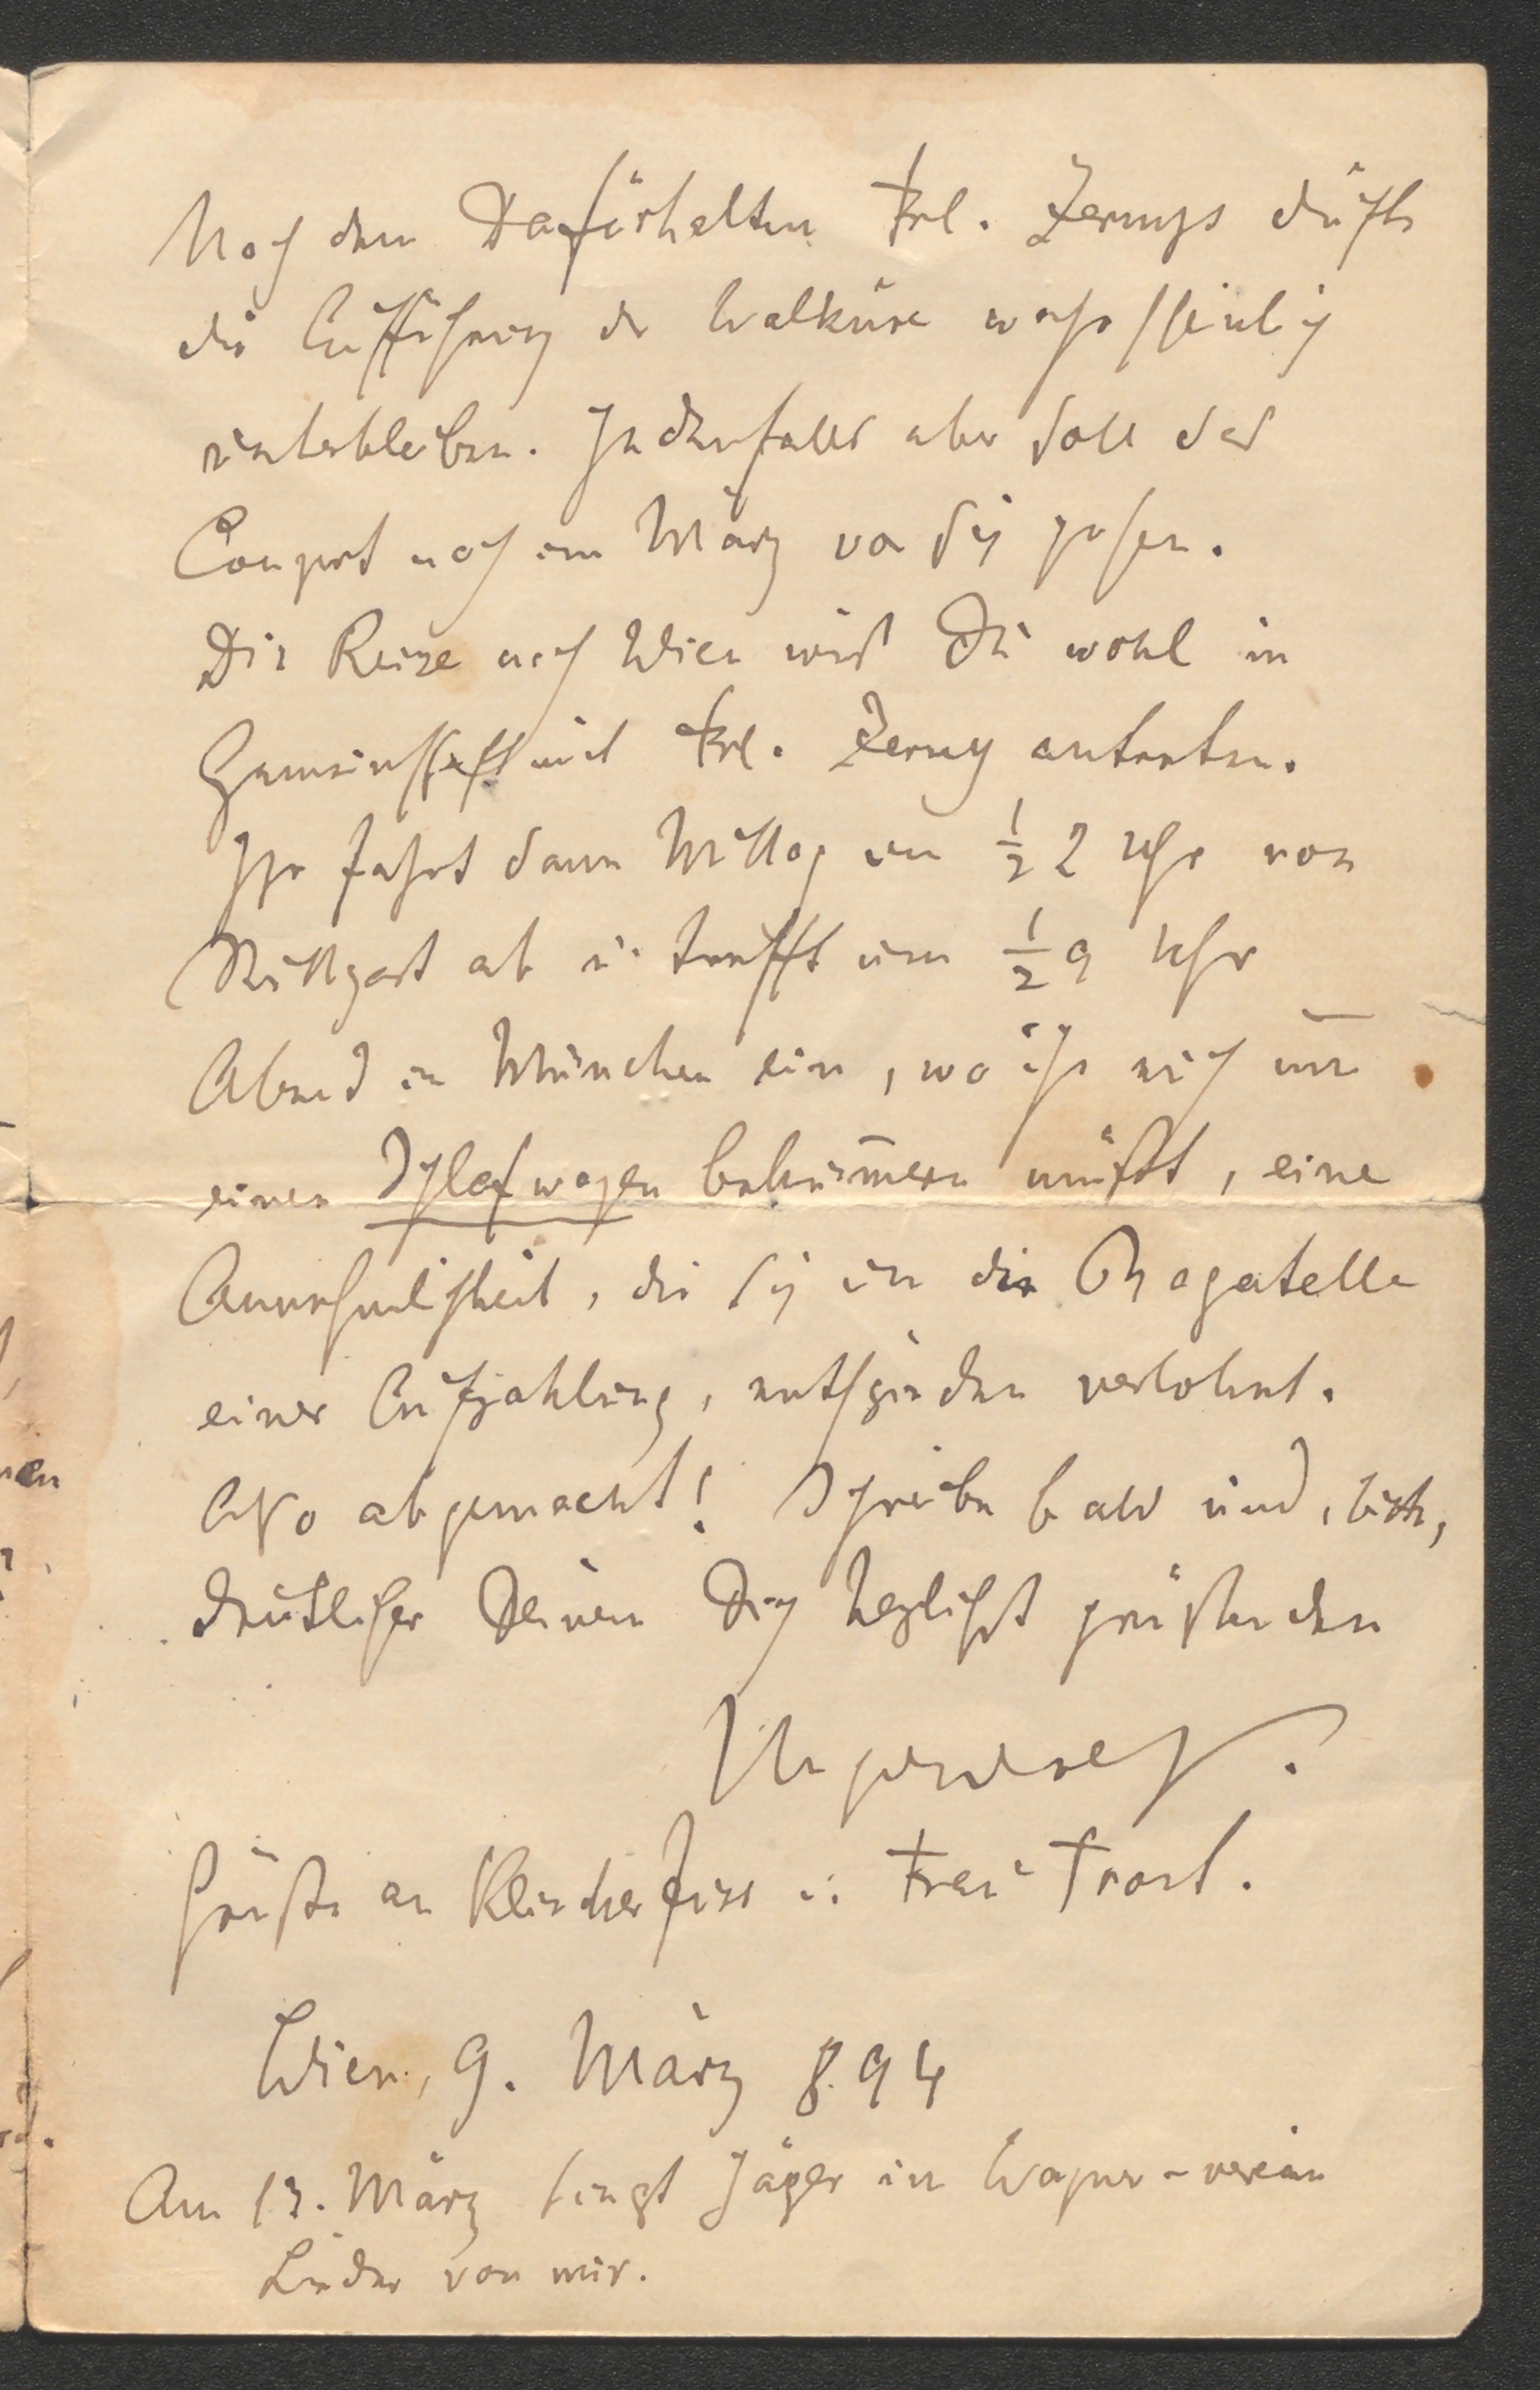 Nach dem Dafürhalten Frl. Zernys dürfte
die Aufführung der Walküre wahrscheinlich
unterbleiben. Jedenfalls aber soll das
Conzert noch im März vor sich gehen.
Die Reise nach Wien wirst Du wohl in
Gemeinschaft mit Frl. Zerny antreten.
Ihr fahrt dann Mittag um ½ 2 Uhr von
Stuttgart ab u. trefft um ½ 9 Uhr
Abend in München ein, wo ihr euch um
einen Schlafwagen bekum̄ern müßt, eine
Annehmlichkeit, die sich um die Bagatelle
einer Aufzahlung, entschieden verlohnt.
Also abgemacht! Schreibe bald und, bitte,
deutlicher Deinem Dich herzlichst grüßenden
Grüße an Klinckerfuss u. Frau
Wien, 9. März 894
Am 13. März singt Jäger im Wagner-verein
Lieder von mir.